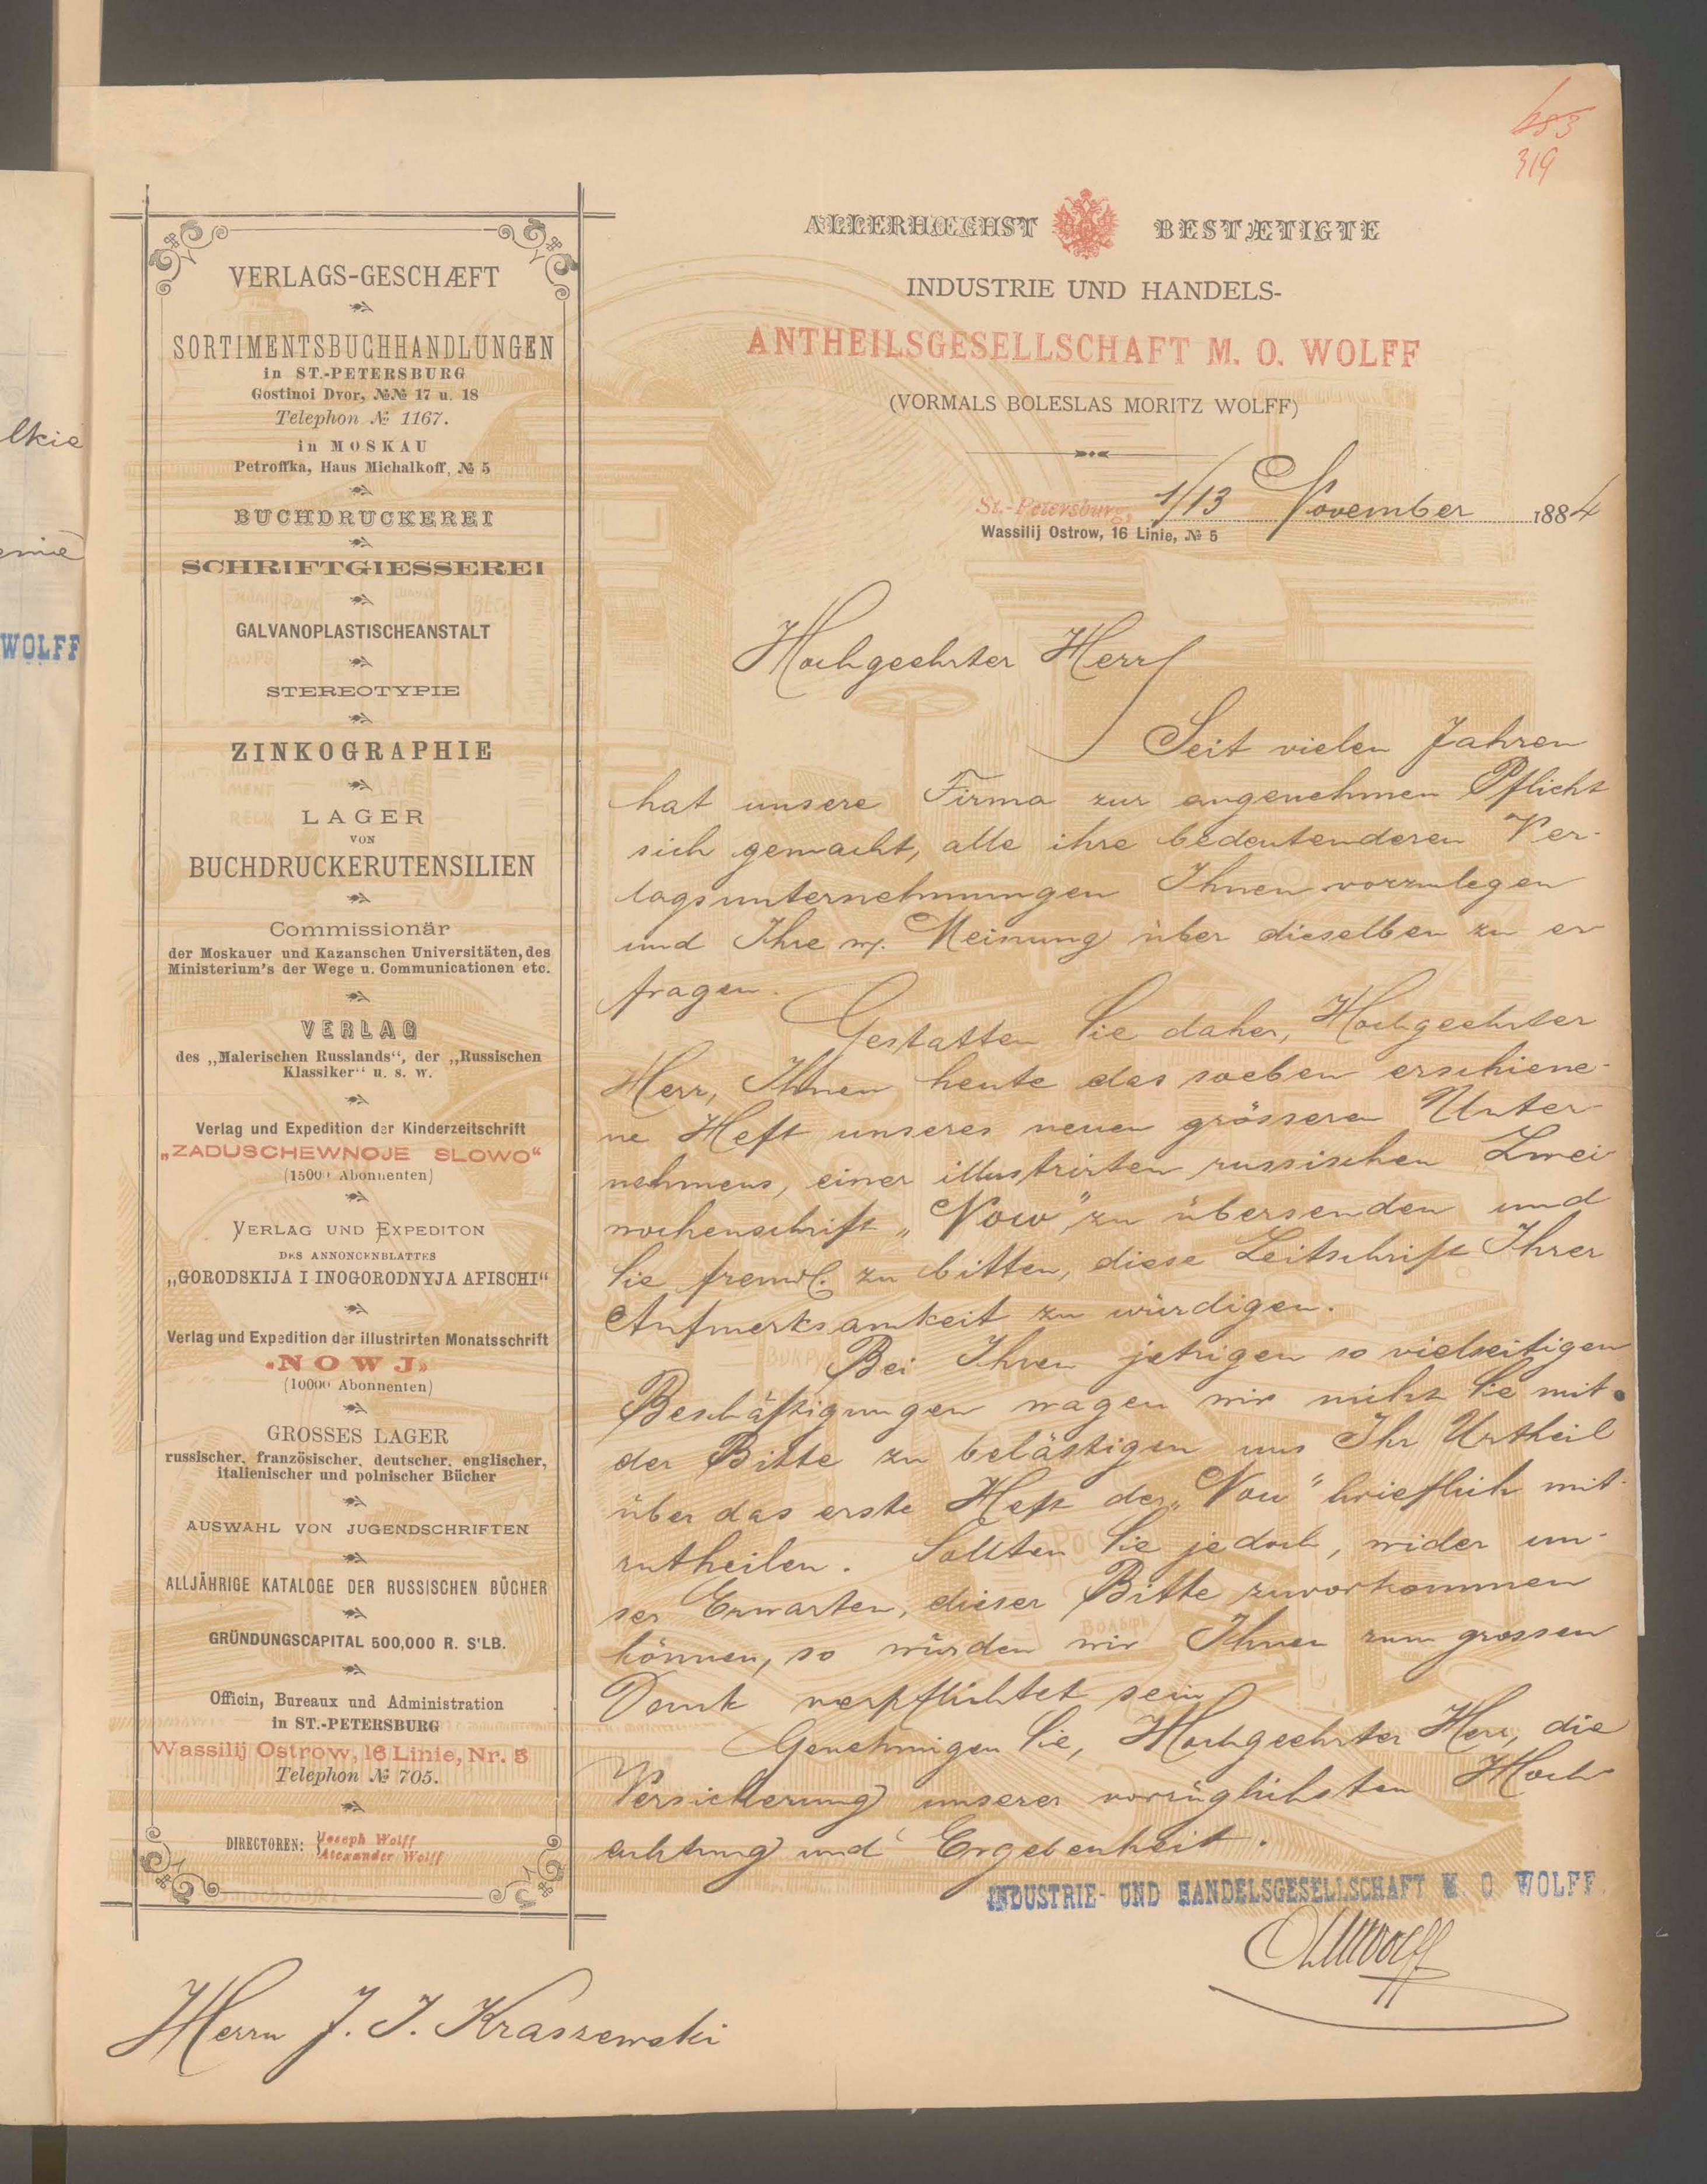 483
319
VERLAGS-GESCHÆFT
SORTIMENTSBUCHHANDLUNGEN
in ST.-PETERSBURG
Gostinoi Dvor, №№ 17 u. 18
Telephon № 1167.
in MOSKAU
Petroffka, Haus Michalkoff, № 5
BUCHDRUCKEREI
SCHRIFTGIESSEREI
GALVANOPLASTISCHEANSTALT
STEREOTYPIE
ZINKOGRAPHIE
LAGER
VON
BUCHDRUCKERUTENSILIEN
Commissionär
der Moskauer und Kazanschen Universitäten, des
Ministerium's der Wege u. Communicationen etc.
VERLAG
des „Malerischen Russlands“, der „Russischen
Klassiker“ u. s. w.
Verlag und Expedition der Kinderzeitschrift
„ZADUSCHEWNOJE SLOWO“
(15000 Abonnenten)
VERLAG UND EXPEDITON
DES ANNONCENBLATTES
„GORODSKIJA I INOGORODNYJA AFISCHI“
Verlag und Expedition der illustrirten Monatsschrift
«NOWJ»
(10000 Abonnenten)
GROSSES LAGER
russischer, französischer, deutscher, englischer,
italienischer und polnischer Bücher
AUSWAHL VON JUGENDSCHRIFTEN
ALLJÄHRIGE KATALOGE DER RUSSISCHEN BÜCHER
GRÜNDUNGSCAPITAL 500,000 R. S'LB.
Officin, Bureaux und Administration
in ST.-PETERSBURG
Wassilij Ostrow, 16 Linie, Nr. 5
Telephon № 705.
DIRECTOREN: Joseph Wolff
Alexander Wolff
ALLERHŒCHST BESTÆTIGTE
INDUSTRIE UND HANDELS-
ANTHEILSGESELLSCHAFT M. O. WOLFF
(VORMALS BOLESLAS MORITZ WOLFF)
St.-Petersburg, 1/13 November 1884
Wassilij Ostrow, 16 Linie, № 5
Hochgeehrter Herr
Seit vielen Jahren
hat unsere Firma zur angenehmen Pflicht
sich gemacht, alle ihre bedeutenderen Ver-
lagsunternehmungen Ihnen vorzulegen
und Ihre Meinung über dieselben zu er
fragen.
Gestatten Sie daher, Hochgeehrter
Herr, Ihnen heute das soeben erschiene-
ne Heft unseres neuen grösseren Unter
nehmens, einer illustrirten russischen Zwei
wochenschrift „Now“ zu übersenden und
Sie freundl. zu bitten, diese Zeitschrift Ihrer
Aufmerksamkeit zu würdigen.
Bei Ihren jetzigen so vielseitigen
Beschäftigungen wagen wir nicht Sie mit
der Bitte zu belästigen uns Ihr Urtheil
über das erste Heft der „Now“ brieflich mit-
zutheilen. Sollten Sie jedoch, wider un-
ser Erwarten, dieser Bitte zuvorkommen
können, so würden wir Ihnen zum grossen
Dank verpflichtet sein
Genehmigen Sie, Hochgeehrter Herr, die
Versicherung unserer vorzüglichsten Hoch
achtung und Ergebenheit.
INDUSTRIE- UND HANDELSGESELLSCHAFT M. O WOLFF
Herrn J. I. Kraszewski
WOLFF